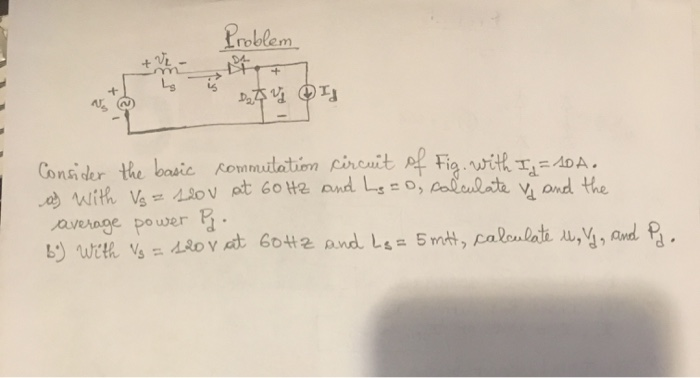 Problem
+ VL -
D1
Ls
is
+
+
vs
D2
vd
Id
-
-
Consider the basic commutation circuit of Fig. with Id = 10A.
a) With Vs = 120V at 60Hz and Ls = 0, calculate Vd and the
average power Pd.
b) With Vs = 120V at 60Hz and Ls = 5mH, calculate u, Vd, and Pd.